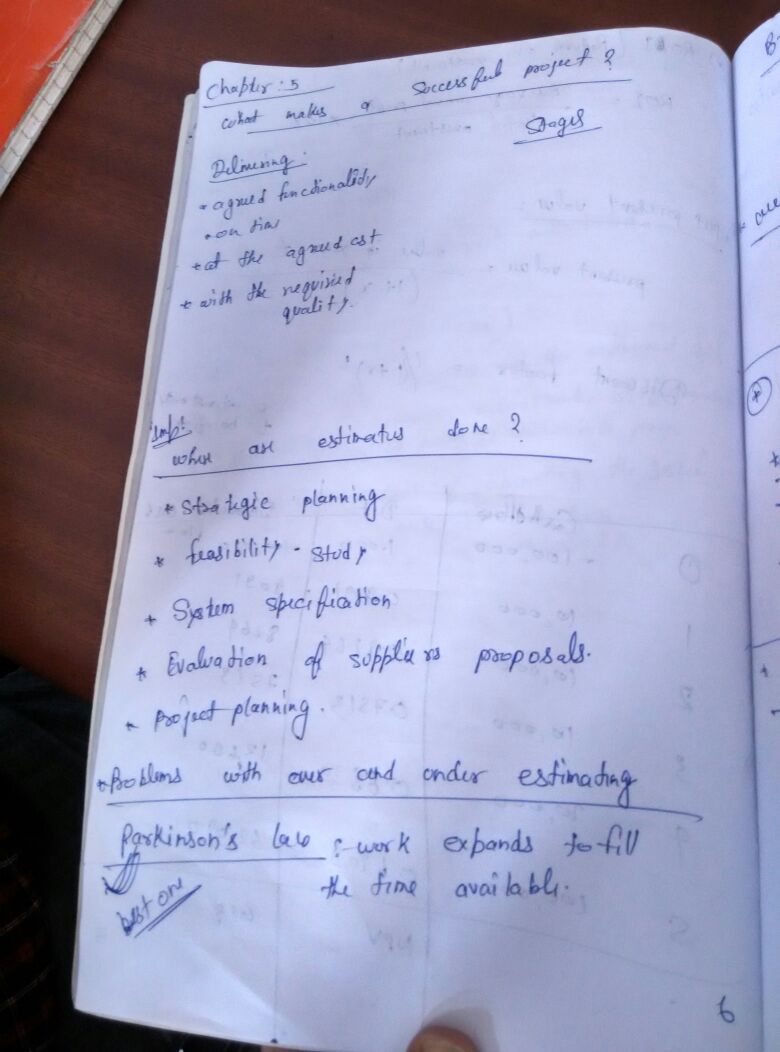 Chapter : 5
what makes a Successful project ?
Stages
Delivering :
* agreed functionality
* on time
* at the agreed cst
* with the required
quality.
Imp:
where are estimates done ?
* Strategic planning
* feasibility - study
* System specification
* Evaluation of suppliers proposals.
* project planning.
* Problems with over and under estimating
Parkinson's law : work expands to fill
the time available.
best one
6